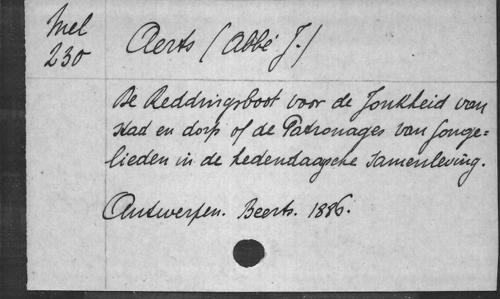 Mel
230
Aerts (Abbé J.)
De Reddingsboot voor de Jonkheid van
stad en dorp of de Patronages van Jonge-
lieden in de hedendaagsche samenleving.
Antwerpen. Beerts. 1886.